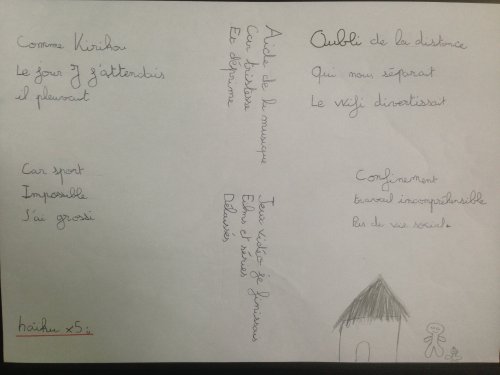 Comme Kirikou
Le jour J j'attendais
il pleuvait
Car sport
Impossible
J'ai grossi
haïku x5:
Aide de la musique
Car tristesse
Et déprime
Jeux vidéo je finissais
Films et séries
Délaissés
Oubli de la distance
Qui nous séparait
Le wifi divertissait
Confinement
Travail incompréhensible
Pas de vie sociale